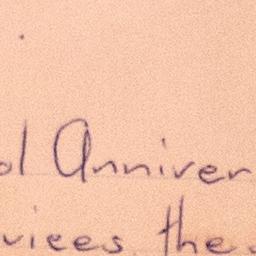 ol Anniver
vices the